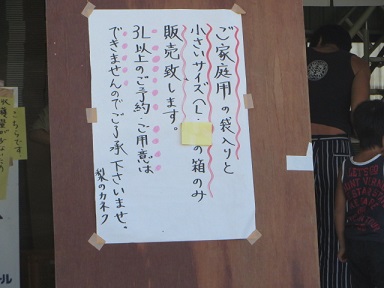 ご家庭用の袋入りと
小さいサイズ(L・の箱のみ
販売致します。
3L以上のご予約・ご用意は
できませんのでご了承下さいませ。
梨のカネク
こちらです